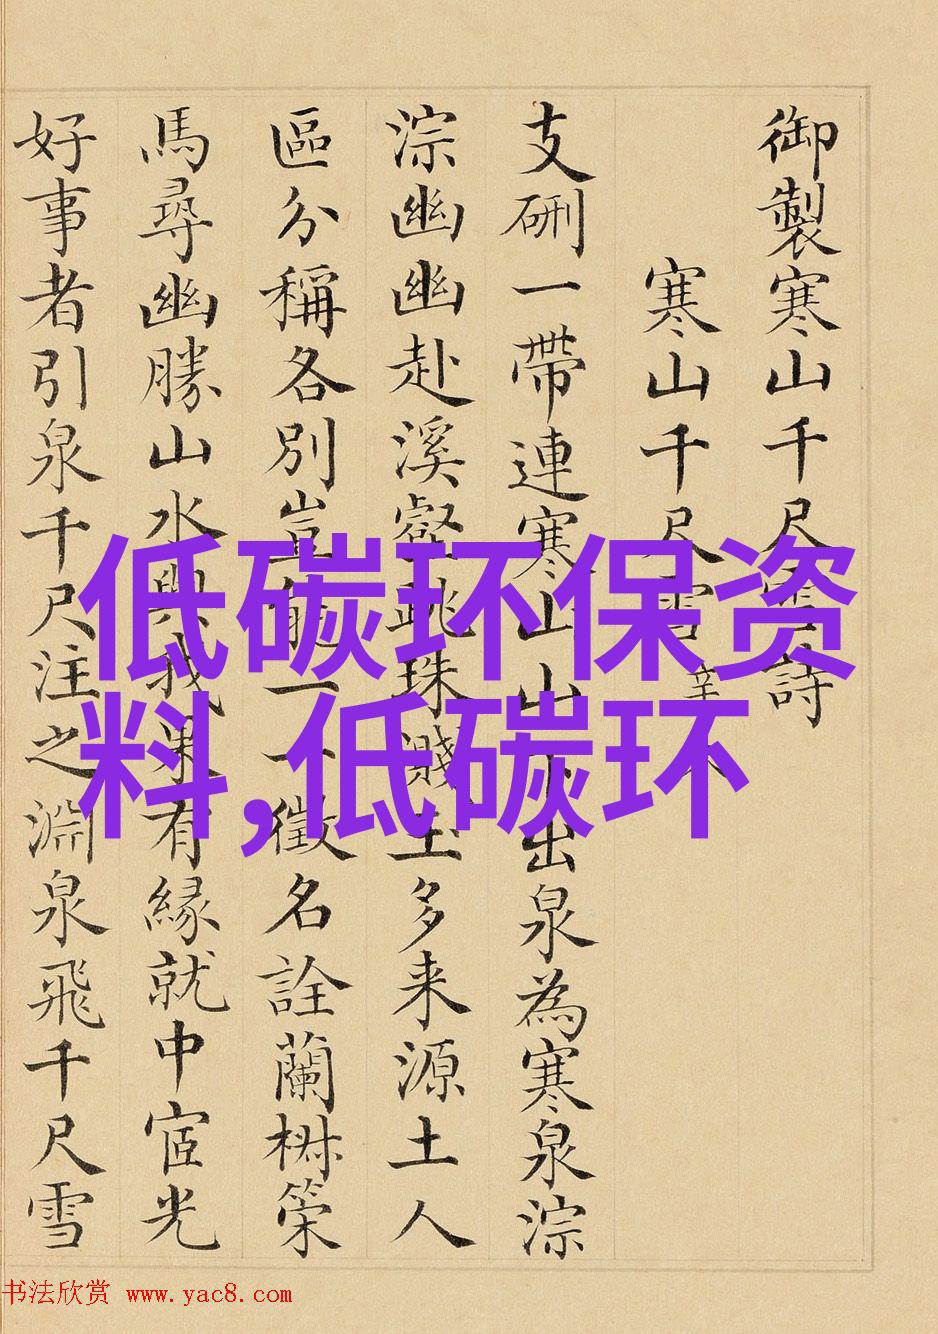 御製寒山千尺雪詩
寒山千尺雪 辛
支硎一帶連寒山山下出泉為寒泉淙
淙幽幽赴溪壑跳珠濺玉多来源土人
區分稱各別豈能一一徵名詮蘭椒策
馬尋幽勝山水與我果有緣就中宧光
好事者引泉千尺注之淵泉飛千尺雪
低碳环保资
料,低碳环
书法欣赏 www.yac8.com